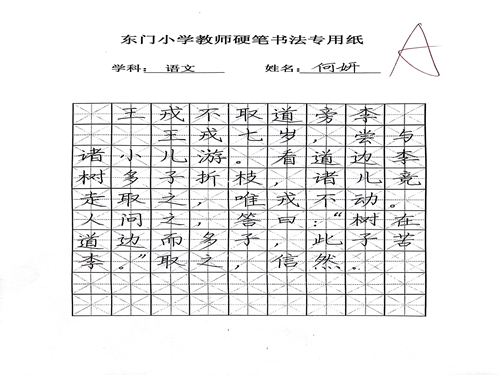 东门小学教师硬笔书法专用纸
学科：语文 姓名：何妍
A
王戎不取道旁李
王戎七岁，尝与
诸小儿游。看道边李
树多子折枝，诸儿竞
走取之，唯戎不动。
人问之，答曰：“树在
道边而多子，此子苦
李。”取之，信然。